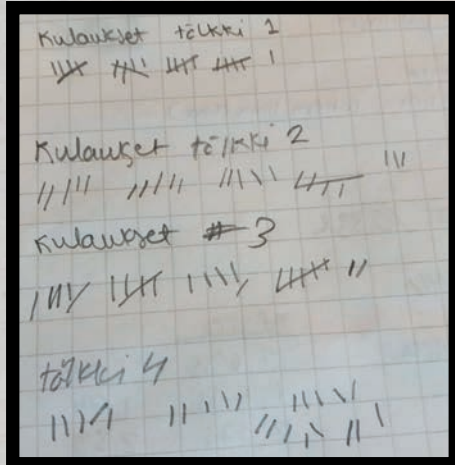 Kulaukset tölkki 1
𝍸 𝍸 𝍸 𝍸 |
Kulaukset tölkki 2
||||| ||||| ||||| 𝍸 |||
Kulaukset # 3
||||| 𝍸 ||||| 𝍸 ||
tölkki 4
||||| ||||| |||||
||||| ||  |